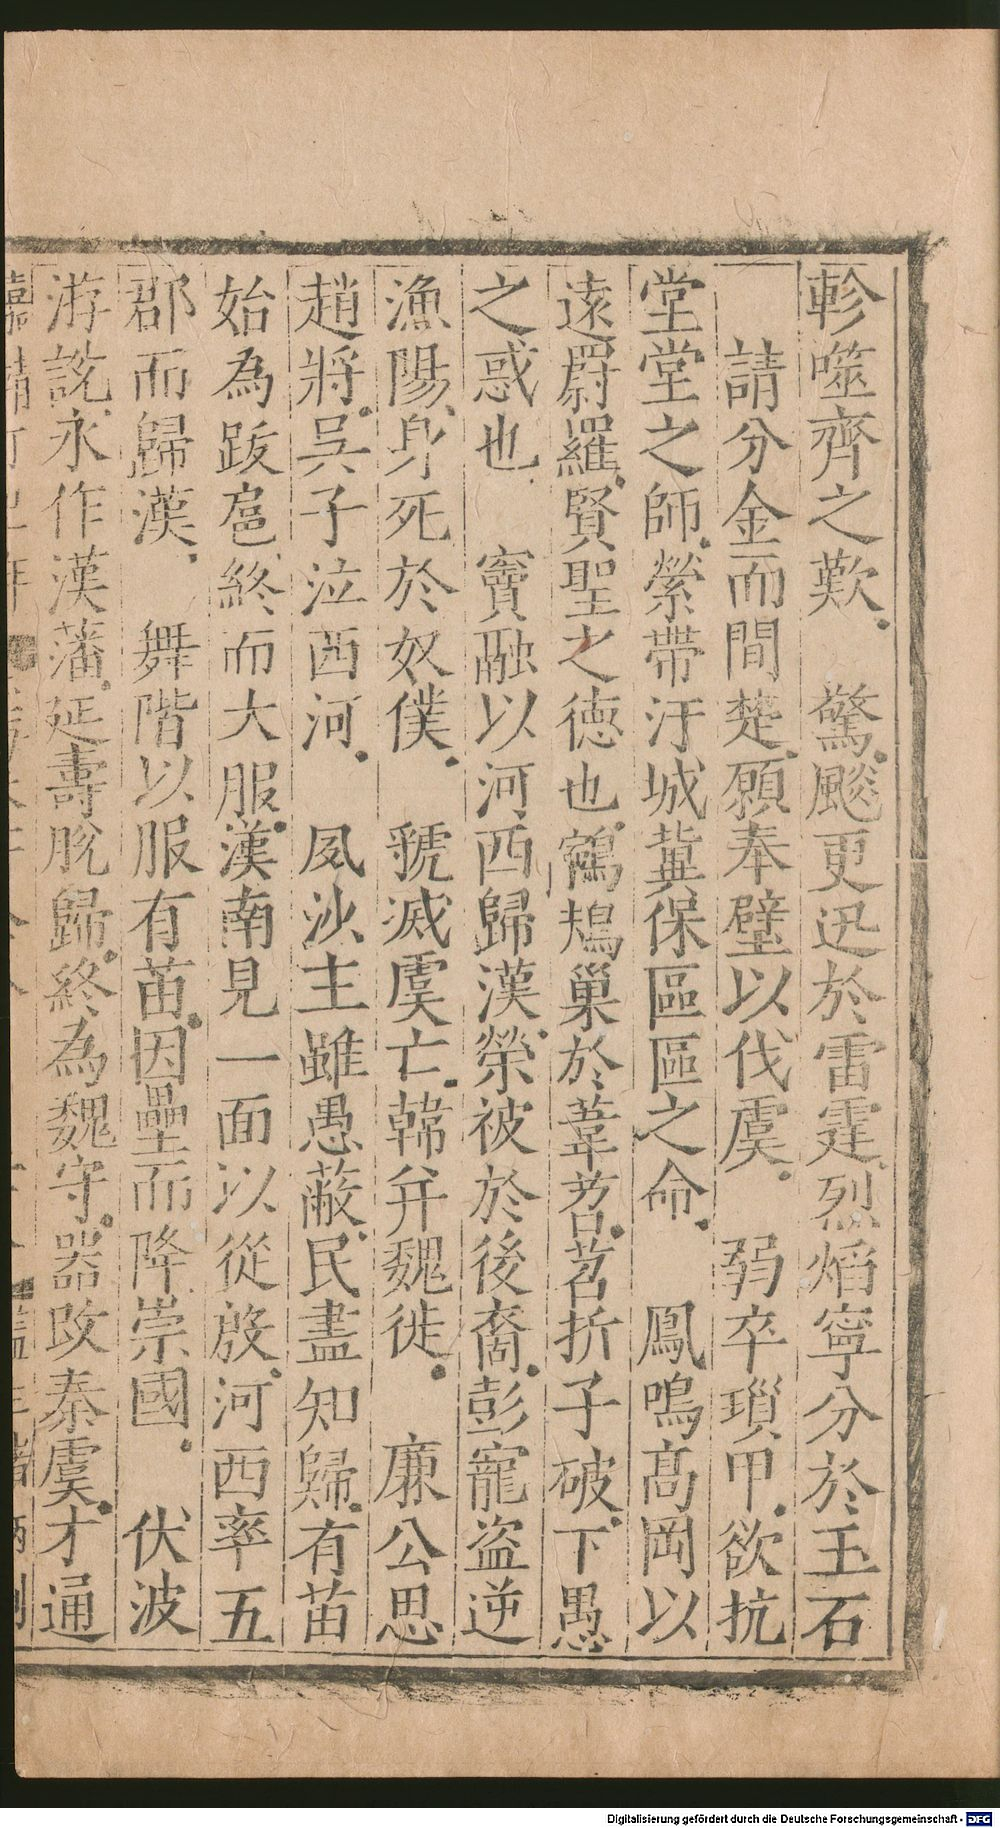 軫噬齊之歎　驚飈更迅於雷霆烈焰寧分於玉石
請分金而間楚願奉璧以伐虞　弱卒瑣甲欲抗
堂堂之師縈帶汙城冀保區區之命　鳳鳴高岡以
遠罻羅賢聖之德也鶺鴂巢於葦苕苕折子破下愚
之惑也　竇融以河西歸漢榮被於後裔彭寵盜逆
漁陽身死於奴僕　虢滅虞亡韓并魏徙　廉公思
趙將吳子泣西河　夙沙主雖愚蔽民盡知歸有苗
始為跋扈終而大服漢南見一面以從殷河西率五
郡而歸漢　舞階以服有苗因壘而降崇國　伏波
游說永作漢藩延壽脫歸終為魏守器改秦虞才通
Digitalisierung gefördert durch die Deutsche Forschungsgemeinschaft - DFG